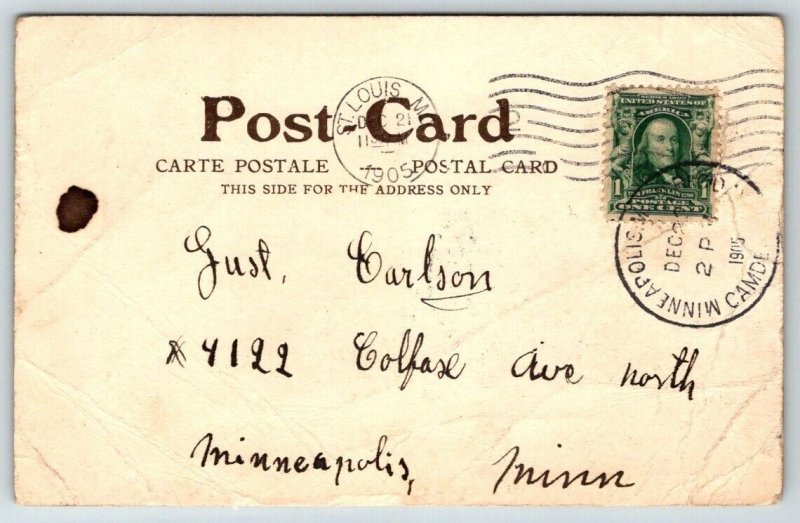 Post-Card
CARTE POSTALE POSTAL CARD
THIS SIDE FOR THE ADDRESS ONLY
ST. LOUIS, M
DEC 21
1905
UNITED STATES OF
AMERICA
1 FRANKLIN 1
POSTAGE
ONE CENT
MINNEAPOLIS, CAMDE
DEC
2 P
1905
Gust, Carlson
4122 Colfase Ave north
Minneapolis, Minn